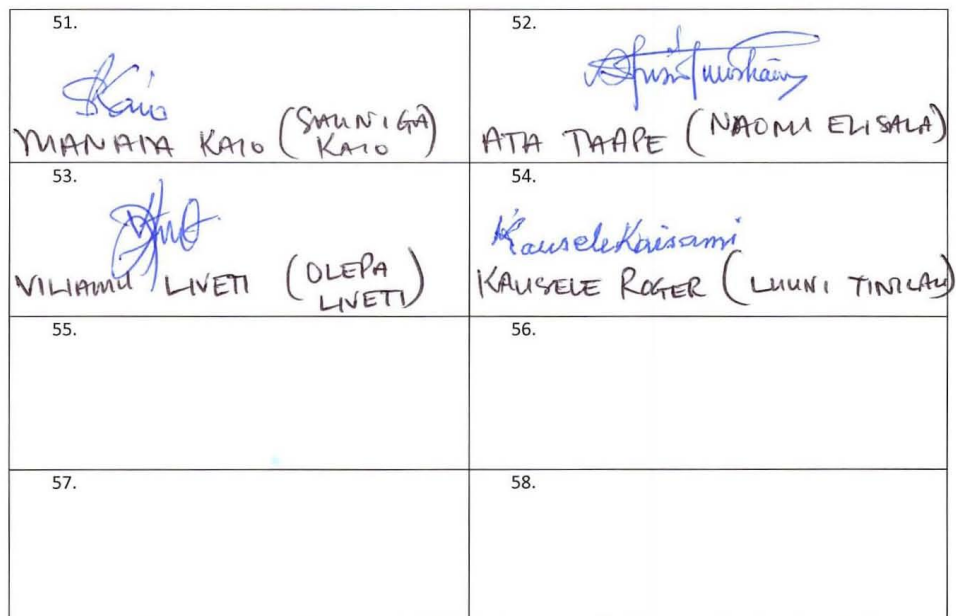 51.
Kaio
MANAIA KAIO (SAUNIGA
KAIO)
52.
ATA TAAPE (NAOMI ELISALA)
53.
VILIAMU LIVETI (OLEPA
LIVETI)
54.
Kausele Kaisami
KAUSELE ROGER (LUUNI TINILAU)
55.
56.
57.
58.